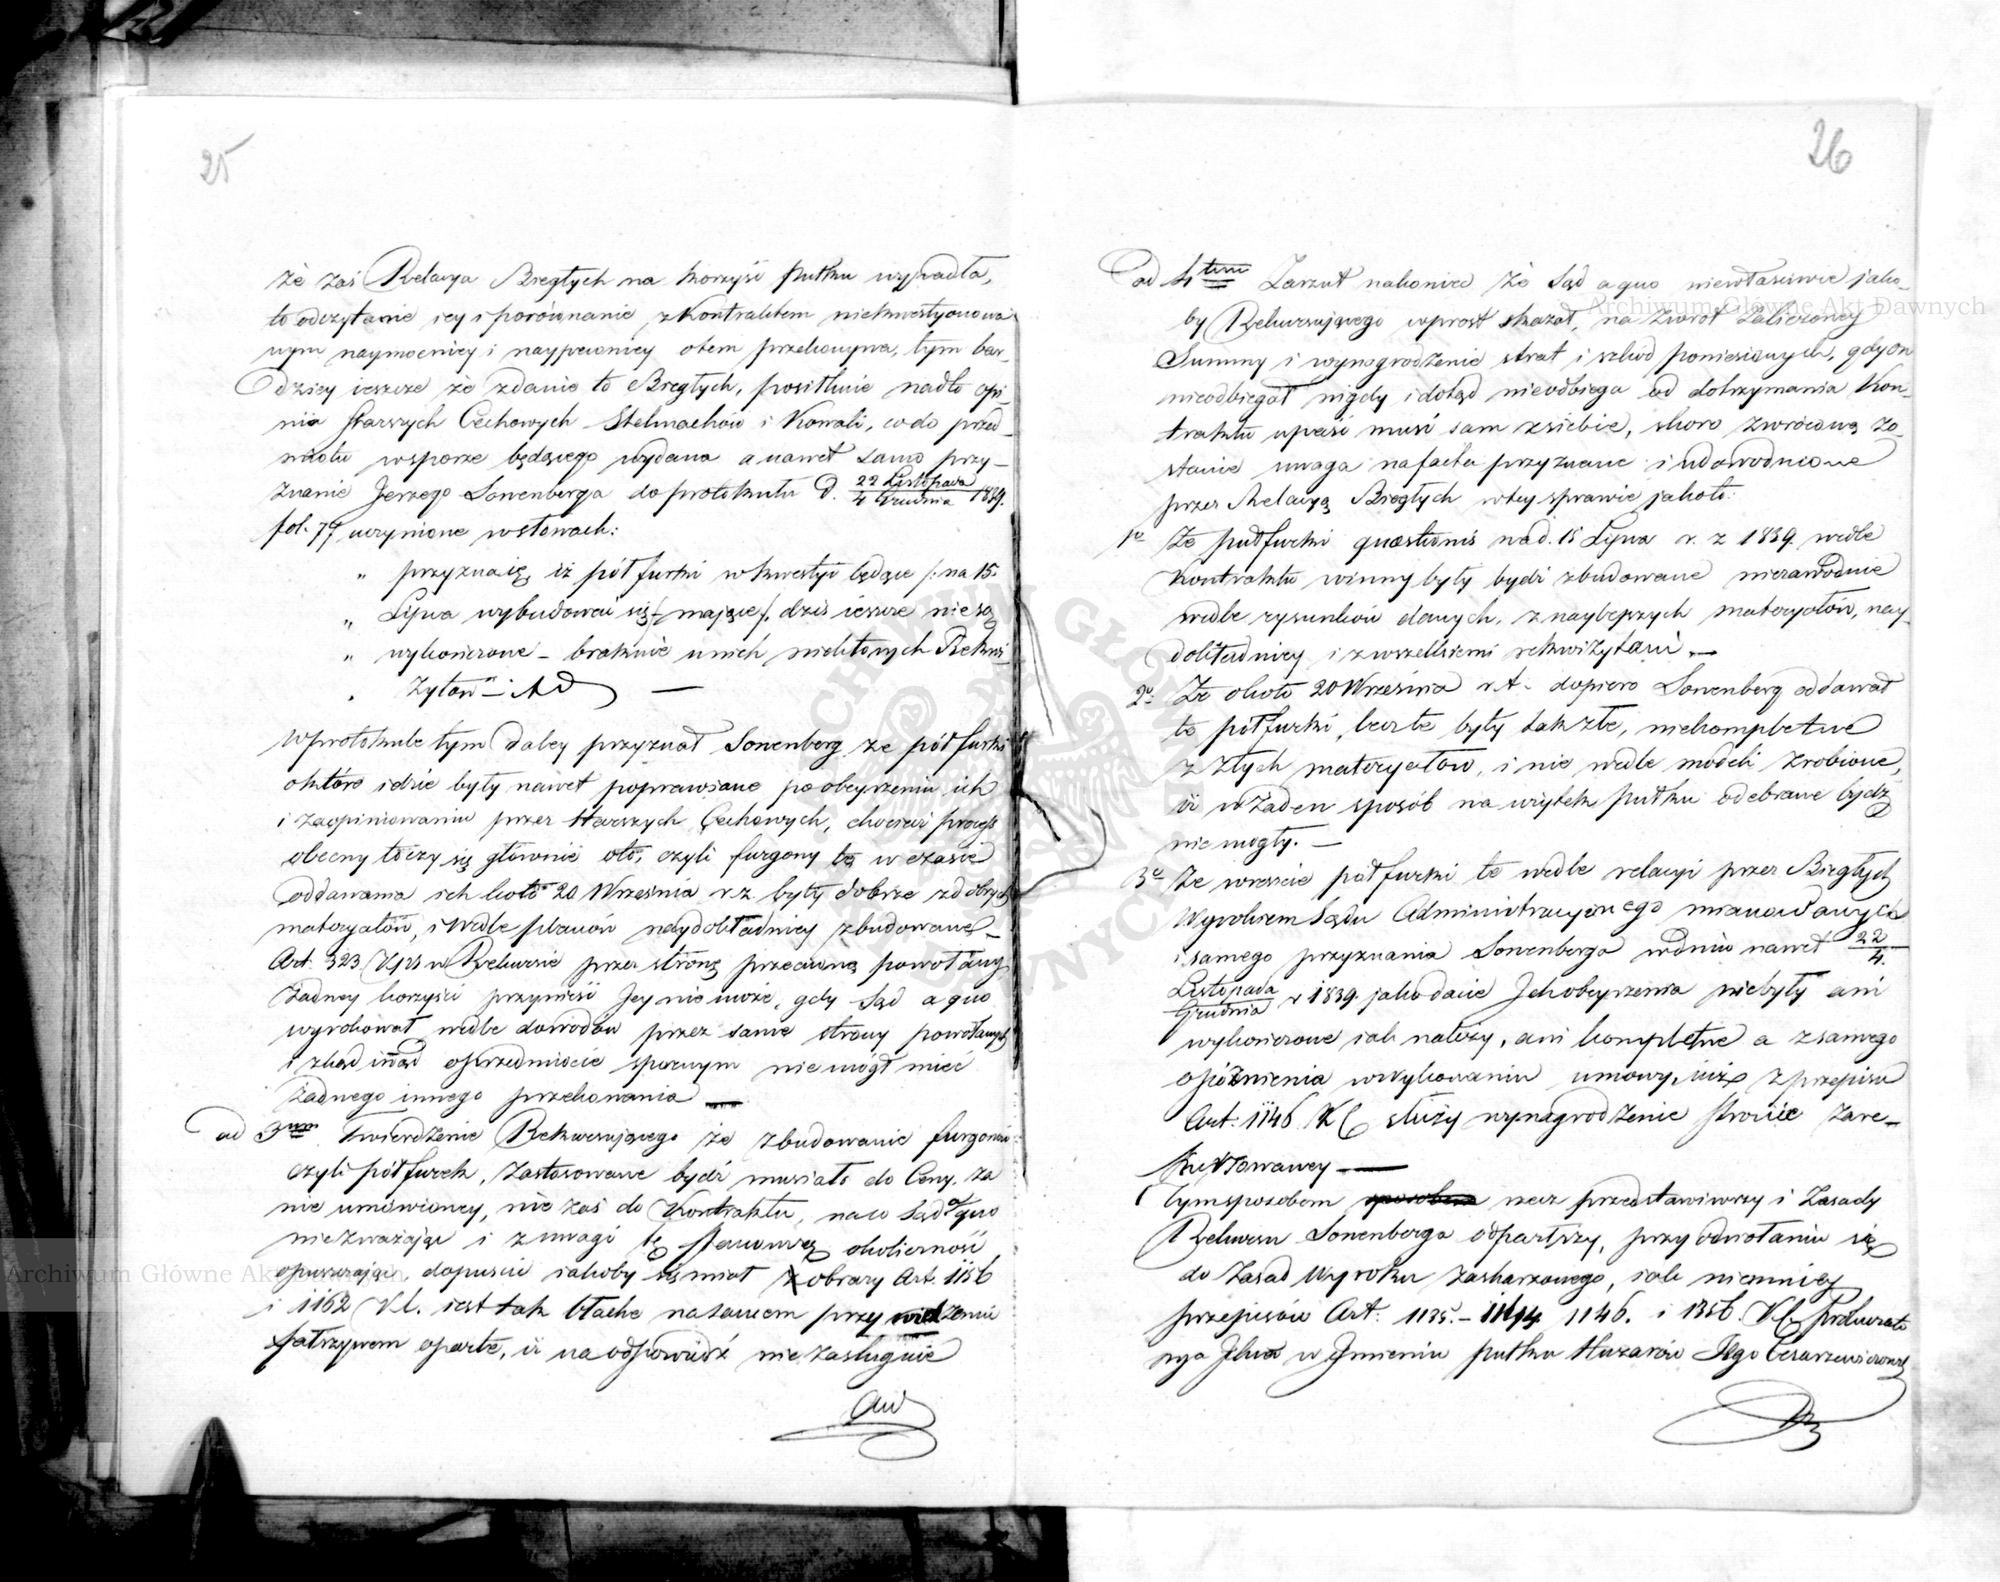 25
że zaś Relacya Biegłych na korzyść pułku wypadła,
to odczytanie iey i porównanie z Kontraktem niekwestyonowa
nym naymocniey i naypewniey o tem przekonywa, tym bar-
dziey ieszcze że zdanie to Biegłych, posiłkuie nadto opi-
nia Starszych Cechowych Stelmachów i Kowali, co do przed-
miotu w sporze będącego wydana a nawet samo przy-
znanie Jerzego Sonenberga do protokułu d. 22 Listopada / 4 Grudnia 1839.
fol. 77 uczynione w słowach:
" przyznaię iż pół furki w kwestyi będące /: na 15.
" Lipca wybudować się maiące /: dziś ieszcze nie są
" wykończone – braknie u nich niektórych Rekwi-
" zytów" –
W protokule tym daley przyznał Sonenberg że pół furki
o które idzie były nawet poprawiane po obeyrzeniu ich
i zaopiniowaniu przez Starszych Cechowych, chociaż proces
obecny toczy się głównie o to, czyli furgony te w czasie
oddawania ich koło 20 Września r. z. były dobrze z dobrych
materyałów, i wedle planów naydokładniey zbudowane –
Art. 323 Kps w Rekursie przez stronę przeciwną powołany
żadney korzyści przynieść Jey nie może, gdy Sąd a quo
wyrokował wedle dowodów przez same strony powołanych
i zkąd inąd o przedmiocie spornym nie mógł mieć
żadnego innego przekonania –
ad 3um Twierdzenie Rekursuiącego że zbudowanie furgonów
czyli pół furek, zastosowane bydź musiało do Ceny za
nie umówioney, nie zaś do Kontraktu, na co Sąd a quo
nie zważaiąc i z uwagi tę stanowczą okoliczność
opuszczaiąc, dopuścić iakoby się miał obrazy Art. 1156
i 1162 K C. iest tak błache na samem przywidzeniu
oparte, iż na odpowiedź nie zasługuie
26
ad 4tum Zarzut nakoniec że Sąd a quo niewłaściwie jako-
by Rekursuiącego wprost skazał, na zwrot zaliczoney
Summy i wynagrodzenie strat i szkód poniesionych, gdy on
nieodbiegał nigdy i dotąd nieodbiega od dotrzymania Kon-
traktu upaść musi sam z siebie, skoro zwróconą zo-
stanie uwaga na facta przyznane i udowodnione
przez Relacyą Biegłych w tey sprawie jakoto:
1o Że pułfurki quaestionis na d. 15 Lipca r. z 1839 wedle
Kontraktu winny były bydź zbudowane niezawodnie
wedle rysunków danych, z naylepszych materyałów, nay-
dokładniey i z wszelkiemi rekwizytami. –
2o Że około 20 Września r. t. dopiero Sonenberg oddawał
te pół furki, lecz te były tak złe, niekompletne
z złych materyałów, i nie wedle modeli zrobione,
iż w żaden sposób na użytek pułku odebrane bydź
nie mogły. –
3o Że wreszcie pół furki te wedle relacyi przez Biegłych
Wyrokiem Sądu Administracyinego mianowanych
i samego przyznania Sonenberga w dniu nawet 22/4.
Listopada / Grudnia r 1839. jako dacie Ich obeyrzenia niebyły ani
wykończone iak należy, ani kompletne a z samego
opóźnienia w wykonaniu umowy, iuż z przepisu
Art: 1146 K C służy wynagrodzenie stronie zare-
kursowaney –
Tym sposobem rzecz przedstawiwszy i zasady
Rekursu Sonenberga odparłszy, przy odwołaniu się
do zasad Wyroku zaskarżonego, iako niemniey
przepisów Art: 1135. – 1144 1146. i 1356. K C Prokurato
rya Jlna w Imieniu pułku Huzarów Jego Cesarzewiczowsk